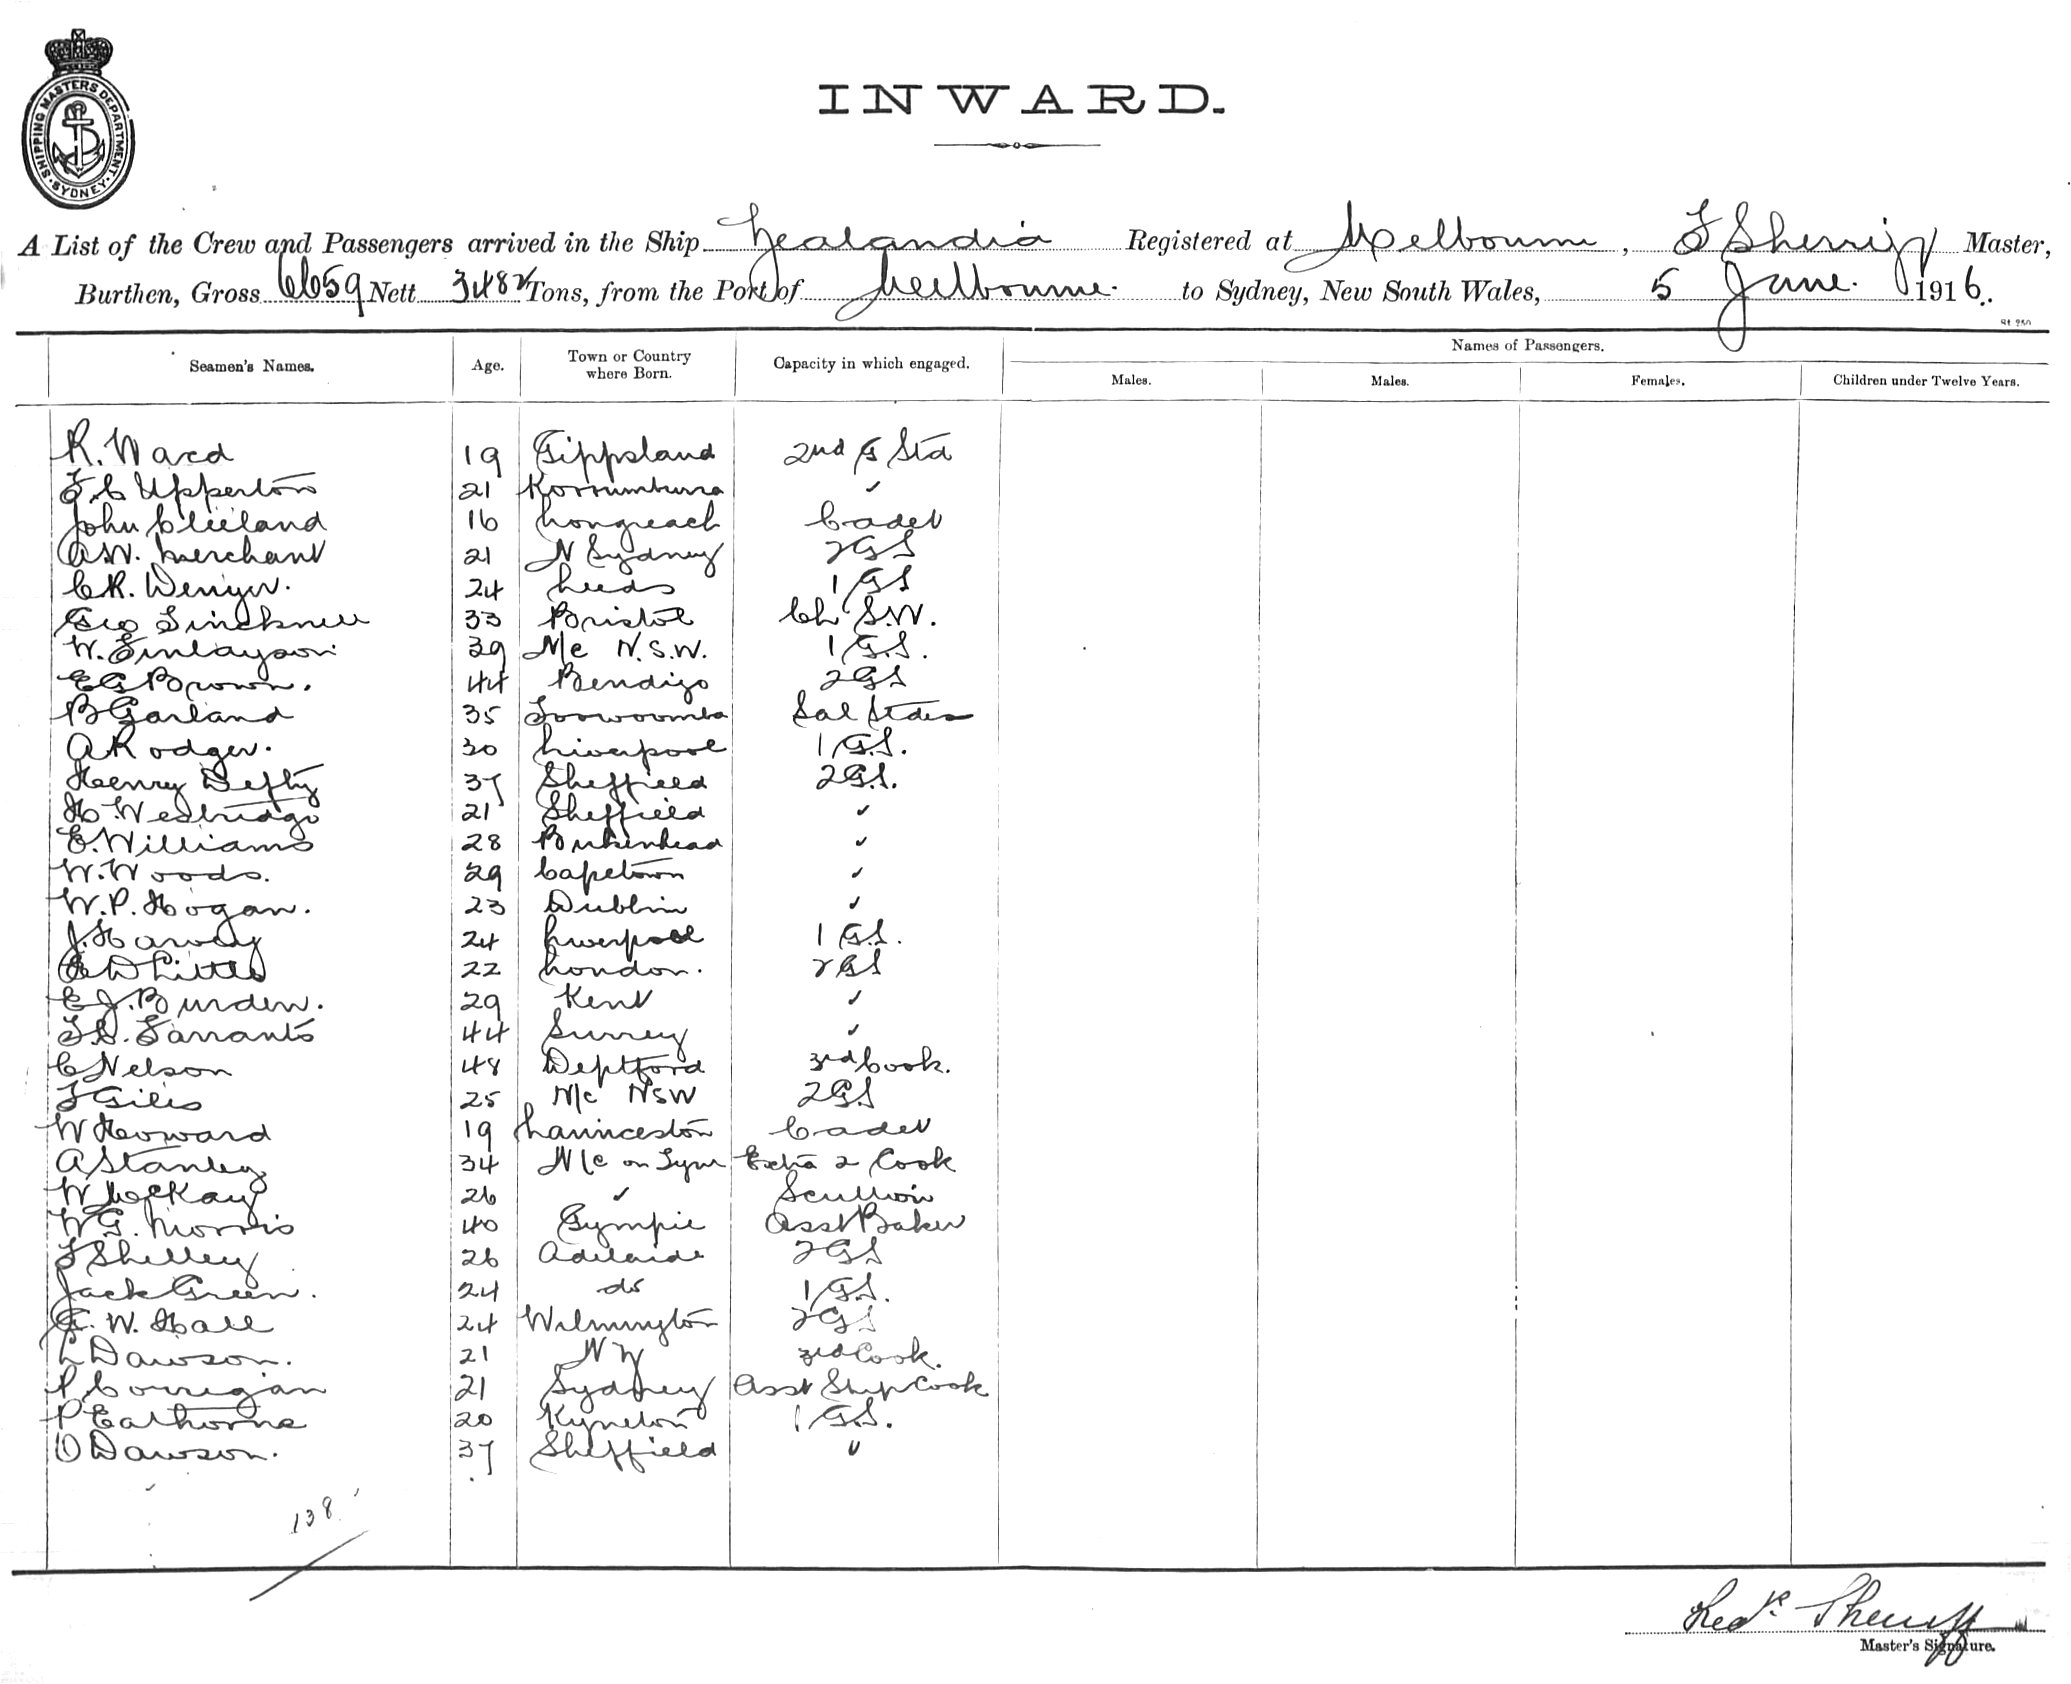 SHIPPING MASTERS DEPARTMENT. SYDNEY.
INWARD.
A List of the Crew and Passengers arrived in the Ship Zealandia Registered at Melbourne, F Sherriff Master,
Burthen, Gross 6659 Nett 3482 Tons, from the Port of Melbourne. to Sydney, New South Wales, 5 June. 1916.
Seamen's Names. Age. Town or Country where Born. Capacity in which engaged. Names of Passengers.
Males. Males. Females. Children under Twelve Years.
R. Ward 19 Gippsland 2nd G Std
F.C Upperton 21 Korrumburra "
John Clieland 16 Longreach Cadet
A.W. Merchant 21 N Sydney 2 G S
C R. Wenyer. 24 Leeds 1 G S
Geo Tincknell 33 Bristol Ch S.W.
W. Finlayson 39 N/c N.S.W. 1 G.S.
E G Brown. 44 Bendigo 2 G S
B Garland 35 Toowoomba Sal Stdess
A Rodger. 30 Liverpool 1 G.S.
Henry Defty 37 Sheffield 2 G.S.
H. Westridge 21 Sheffield "
E. Williams 28 Birkenhead "
W. Woods. 29 Capetown "
W. P. Hogan. 23 Dublin "
J. Harvey 24 Liverpool 1 G.S.
D Little 22 London. 2 G S
E J. Burden. 29 Kent "
Farrants 44 Surrey "
C Nelson 48 Deptford 3rd Cook.
F Giles 25 N/c NSW 2 G S
W Howard 19 Launceston Cadet
A Stanley 34 N/c on Tyne Extra 2 Cook
W McKay 26 " Scullion
W G. Morris 40 Gympie Asst Baker
F Shelley 26 Adelaide 2 G S
Jack Green. 24 do 1 G.S.
G. W. Hall 24 Wilmington 2 G S
L Dawson. 21 N Z 3rd Cook.
P Corrigan 21 Sydney Asst Ship Cook
P Eathorne 20 Kyneton 1 G.S.
O Dawson. 37 Sheffield "
138
Fredk. Sherriff
Master's Signature.